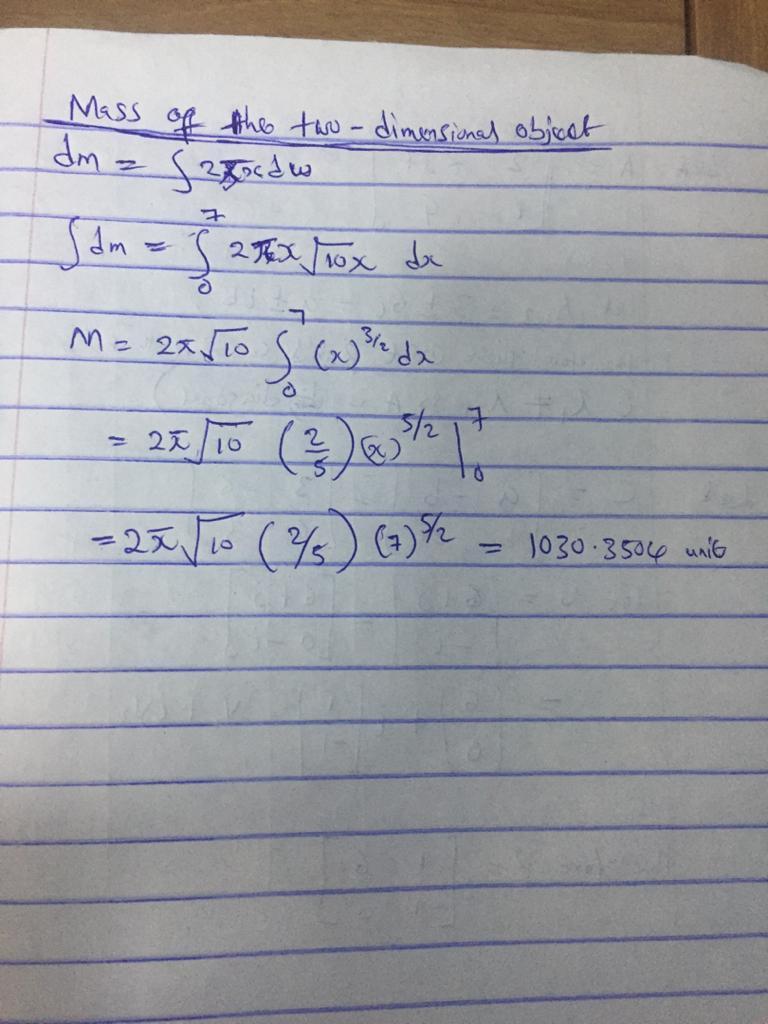 Mass of the two-dimensional object
dm = ∫ 2πx dw
∫ dm = ∫₀⁷ 2πx √10x dx
M = 2π√10 ∫₀⁷ (x)^3/2 dx
= 2π√10 (2/5) (x)^5/2 |₀⁷
= 2π√10 (2/5) (7)^5/2 = 1030.3504 unit